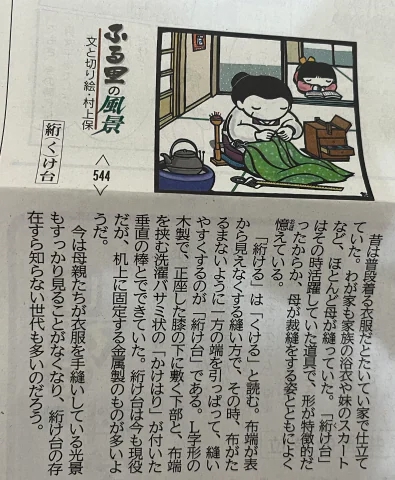 ふる里の風景
文と切り絵・村上保
〈544〉
絎くけ台
昔は普段着る衣服だとたいてい家で仕立て
ていた。わが家も家族の浴衣や妹のスカート
など、ほとんど母が縫っていた。「絎け台」
はその時活躍していた道具で、形が特徴的だ
ったからか、母が裁縫をする姿とともによく
憶えている。
「絎ける」は「くける」と読む。布端が表
から見えなくする縫い方で、その時、布がた
るまないように一方の端を引っぱって、縫い
やすくするのが「絎け台」である。L字形の
木製で、正座した膝の下に敷く下部と、布端
を挟む洗濯バサミ状の「かけはり」が付いた
垂直の棒とでできていた。絎け台は今も現役
だが、机上に固定する金属製のものが多いよ
うだ。
今は母親たちが衣服を手縫いしている光景
もすっかり見ることがなくなり、絎け台の存
在すら知らない世代も多いのだろう。